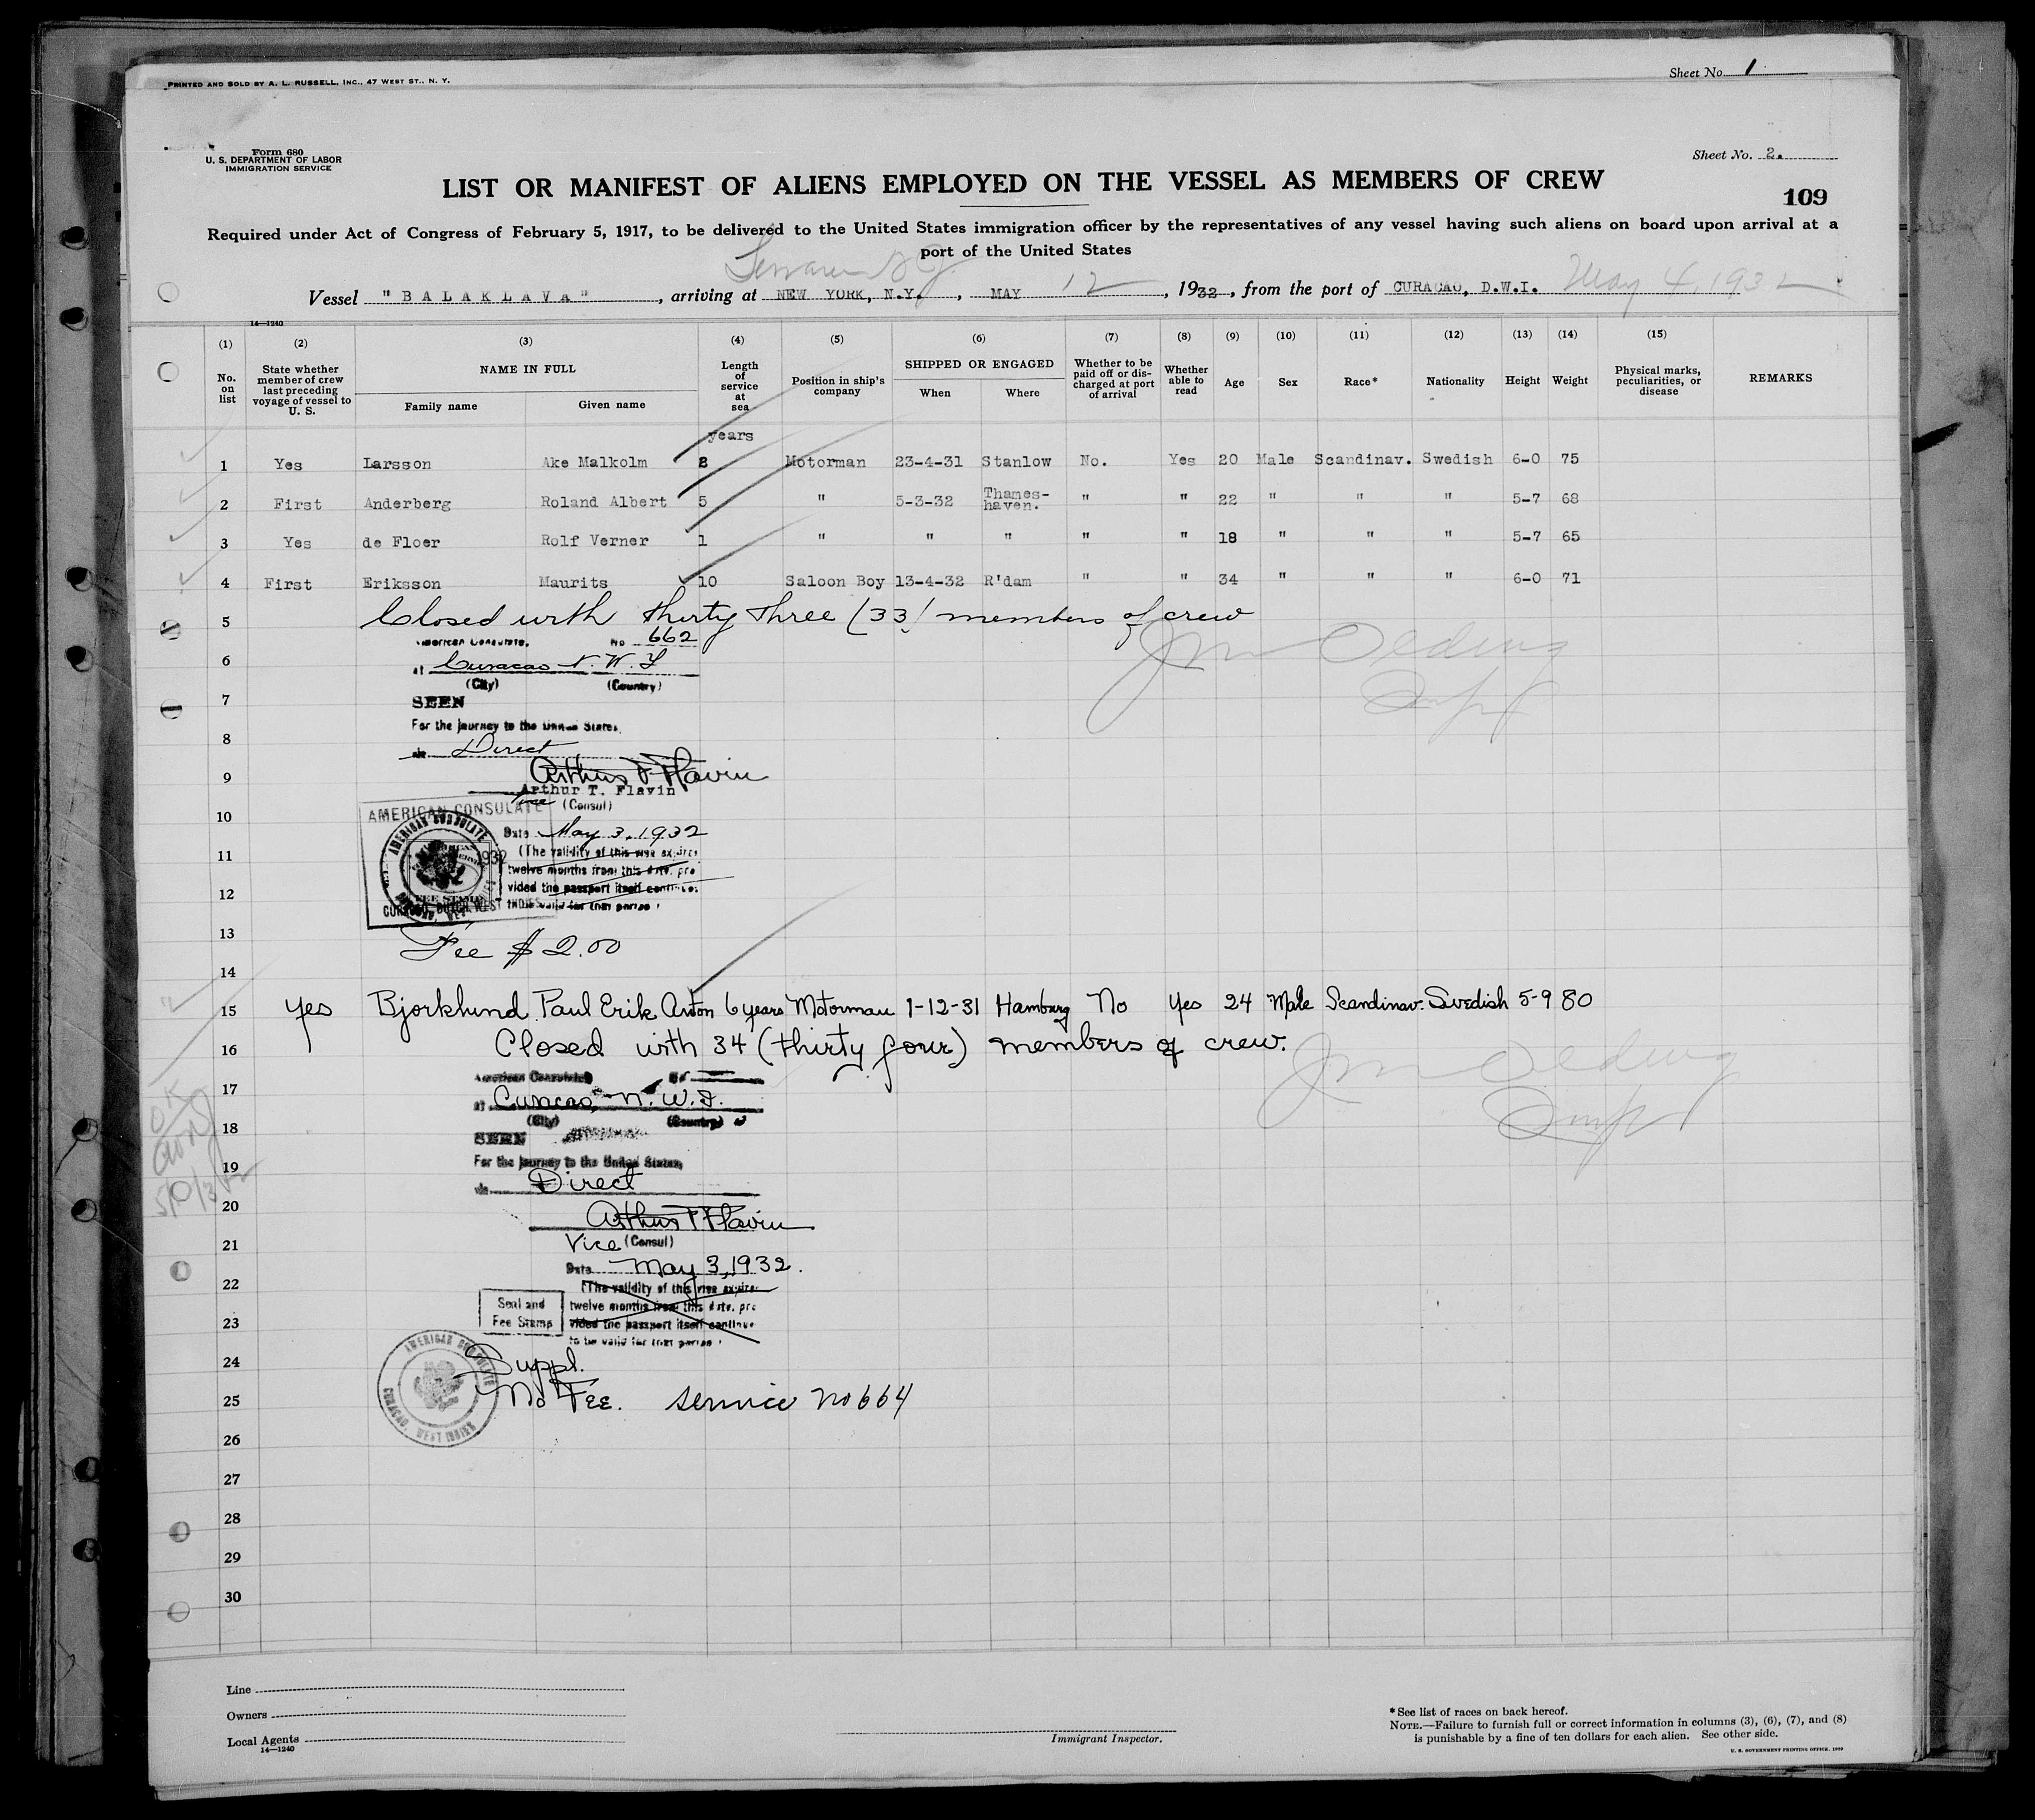 Sheet No. 1
PRINTED AND SOLD BY A. L. RUSSELL, INC., 47 WEST ST., N. Y.
Form 680
U. S. DEPARTMENT OF LABOR
IMMIGRATION SERVICE
Sheet No. 2.
LIST OR MANIFEST OF ALIENS EMPLOYED ON THE VESSEL AS MEMBERS OF CREW
109
Required under Act of Congress of February 5, 1917, to be delivered to the United States immigration officer by the representatives of any vessel having such aliens on board upon arrival at a
port of the United States
Vessel "BALAKLAVA", arriving at NEW YORK, N.Y., MAY 12, 1932, from the port of CURACAO, D.W.I. May 4, 1932
14—1240
(1) (2) (3) (4) (5) (6) (7) (8) (9) (10) (11) (12) (13) (14) (15)
No. on list
State whether member of crew last preceding voyage of vessel to U. S.
NAME IN FULL
Family name
Given name
Length of service at sea
Position in ship's company
SHIPPED OR ENGAGED
When
Where
Whether to be paid off or discharged at port of arrival
Whether able to read
Age
Sex
Race*
Nationality
Height
Weight
Physical marks, peculiarities, or disease
REMARKS
years
1 Yes Larsson Ake Malkolm 2 Motorman 23-4-31 Stanlow No. Yes 20 Male Scandinav. Swedish 6-0 75
2 First Anderberg Roland Albert 5 " 5-3-32 Thames-haven. " " 22 " " " 5-7 68
3 Yes de Floer Rolf Verner 1 " " " " " 18 " " " 5-7 65
4 First Eriksson Maurits 10 Saloon Boy 13-4-32 R'dam " " 34 " " " 6-0 71
5 Closed with thirty three (33) members of crew
American Consulate, No 662
6 at Curacao N. W. I
(City) (Country)
7 SEEN
For the journey to the United States,
8 via Direct
9 Arthur T. Flavin
Arthur T. Flavin
Vice (Consul)
10 AMERICAN CONSULATE
Date May 3, 1932
11 (The validity of this visa expires
twelve months from this date, pro
12 vided the passport itself continues
to be valid for that period
AMERICAN CONSULATE
1932
FEE STAMP
CURACAO, DUTCH WEST INDIES
13 Fee $2.00
14
15 Yes Bjorklund Paul Erik Anton 6 years Motorman 1-12-31 Hamburg No Yes 24 Male Scandinav. Swedish 5-9 80
16 Closed with 34 (thirty four) members of crew.
American Consulate
17 at Curacao, N. W. I.
(City) (Country)
18 SEEN
19 For the journey to the United States,
via Direct
20 Arthur T. Flavin
21 Vice (Consul)
Date May 3, 1932.
22 (The validity of this visa expires
twelve months from this date, pro
23 vided the passport itself continue
to be valid for that period
Seal and
Fee Stamp
24 Suppl.
25 No Fee. Service No 664
AMERICAN CONSULATE
CURACAO, WEST INDIES
26
27
28
29
30
Line
Owners
Local Agents
14—1240
Immigrant Inspector.
*See list of races on back hereof.
NOTE.—Failure to furnish full or correct information in columns (3), (6), (7), and (8)
is punishable by a fine of ten dollars for each alien. See other side.